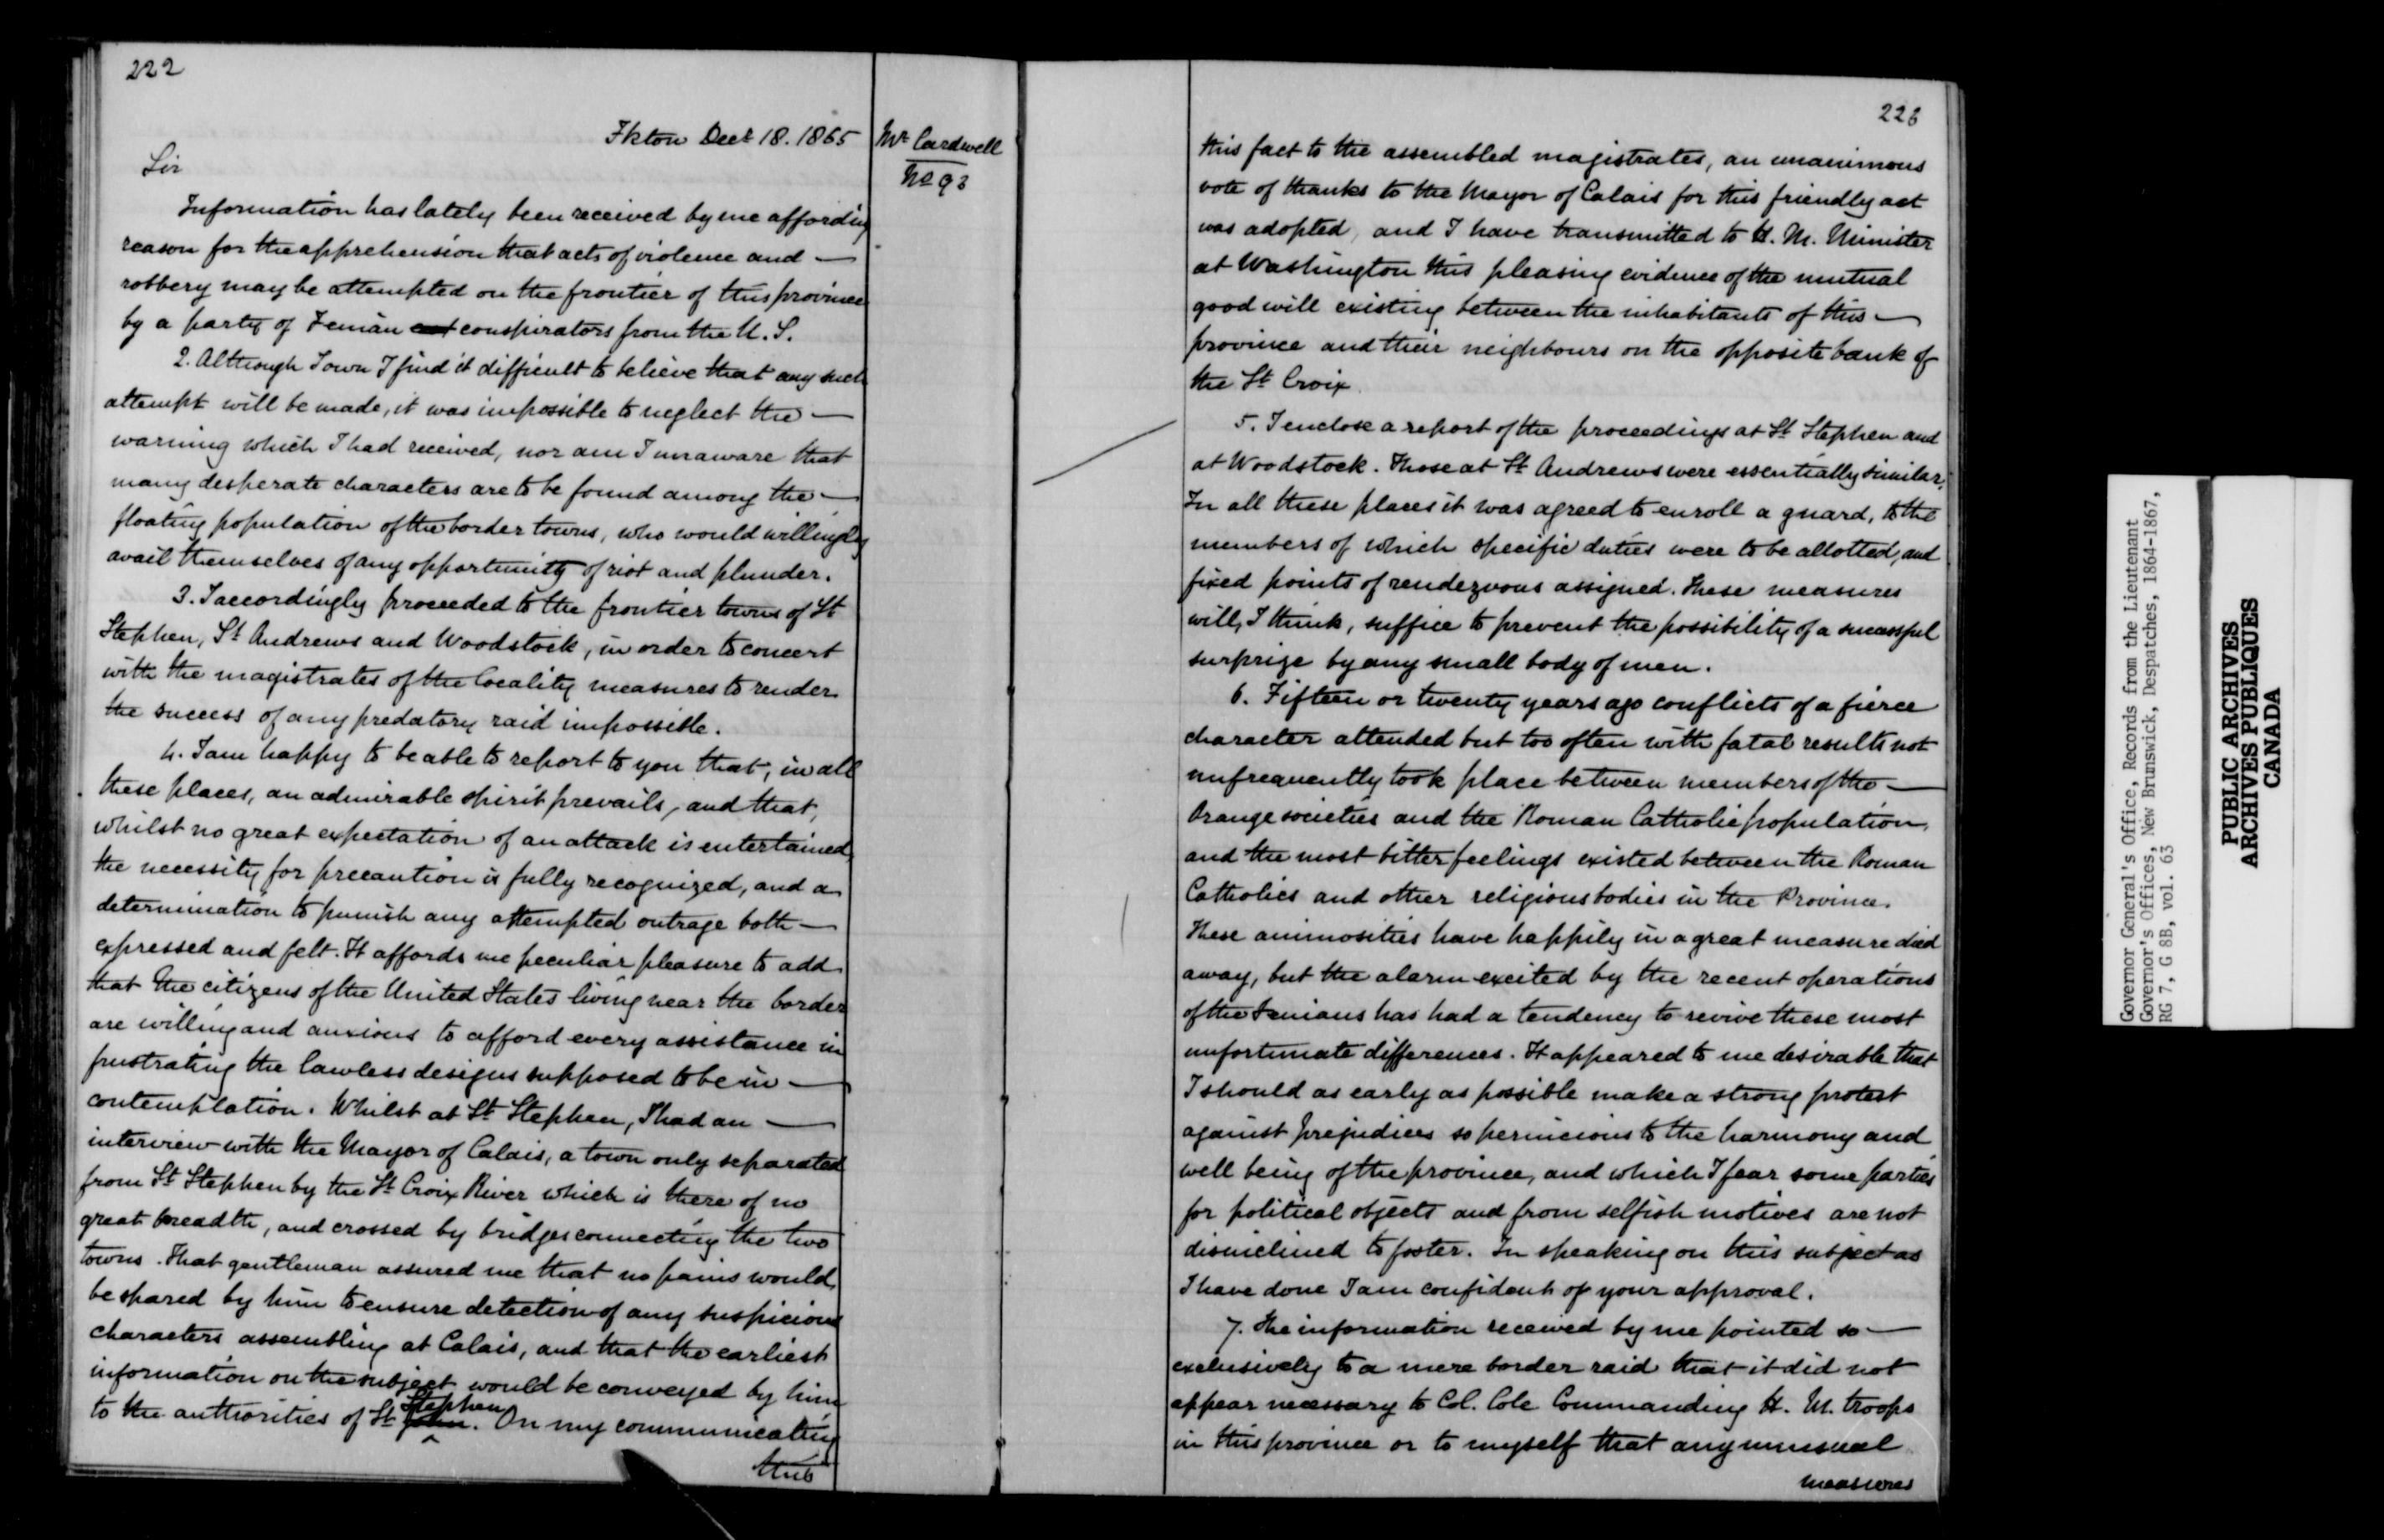 222
Fkton Decr 18. 1865
Mr Cardwell
No 93
Sir
Information has lately been received by me affording
reason for the apprehension that acts of violence and —
robbery may be attempted on the frontier of this province
by a party of Fenian conspirators from the U. S.
2. Although I own I find it difficult to believe that any such
attempt will be made, it was impossible to neglect the —
warning which I had received, nor am I unaware that
many desperate characters are to be found among the —
floating population of the border towns, who would willingly
avail themselves of any opportunity of riot and plunder.
3. I accordingly proceeded to the frontier towns of St
Stephen, St Andrews and Woodstock, in order to concert
with the magistrates of the locality measures to render
the success of any predatory raid impossible.
4. I am happy to be able to report to you that, in all
these places, an admirable spirit prevails, and that,
whilst no great expectation of an attack is entertained
the necessity for precaution is fully recognized, and a
determination to punish any attempted outrage both —
expressed and felt. It affords me peculiar pleasure to add
that the citizens of the United States living near the border
are willing and anxious to afford every assistance in
frustrating the lawless designs supposed to be in —
contemplation. Whilst at St Stephen, I had an —
interview with the Mayor of Calais, a town only separated
from St Stephen by the St Croix River which is there of no
great breadth, and crossed by bridges connecting the two
towns. That gentleman assured me that no pains would
be spared by him to ensure detection of any suspicious
characters assembling at Calais, and that the earliest
information on the subject would be conveyed by him
to the authorities of St John Stephen. On my communicating
this
223
this fact to the assembled magistrates, an unanimous
vote of thanks to the Mayor of Calais for this friendly act
was adopted, and I have transmitted to H. M. Minister
at Washington this pleasing evidence of the mutual
good will existing between the inhabitants of this —
province and their neighbours on the opposite bank of
the St Croix.
5. I enclose a report of the proceedings at St Stephen and
at Woodstock. Those at St Andrews were essentially similar.
In all these places it was agreed to enroll a guard, to the
members of which specific duties were to be allotted, and
fixed points of rendezvous assigned. These measures
will, I think, suffice to prevent the possibility of a successful
surprize by any small body of men.
6. Fifteen or twenty years ago conflicts of a fierce
character attended but too often with fatal results not
unfrequently took place between members of the —
Orange societies and the Roman Catholic population,
and the most bitter feelings existed between the Roman
Catholics and other religious bodies in the Province.
These animosities have happily in a great measure died
away, but the alarm excited by the recent operations
of the Fenians has had a tendency to revive these most
unfortunate differences. It appeared to me desirable that
I should as early as possible make a strong protest
against prejudices so pernicious to the harmony and
well being of the province, and which I fear some parties
for political objects and from selfish motives are not
disinclined to foster. In speaking on this subject as
I have done I am confident of your approval.
7. The information received by me pointed so —
exclusively to a mere border raid that it did not
appear necessary to Col. Cole Commanding H. M. troops
in this province or to myself that any unusual
measures
Governor General's Office, Records from the Lieutenant
Governor's Offices, New Brunswick, Despatches, 1864-1867,
RG 7, G 8B, vol. 63
PUBLIC ARCHIVES
ARCHIVES PUBLIQUES
CANADA